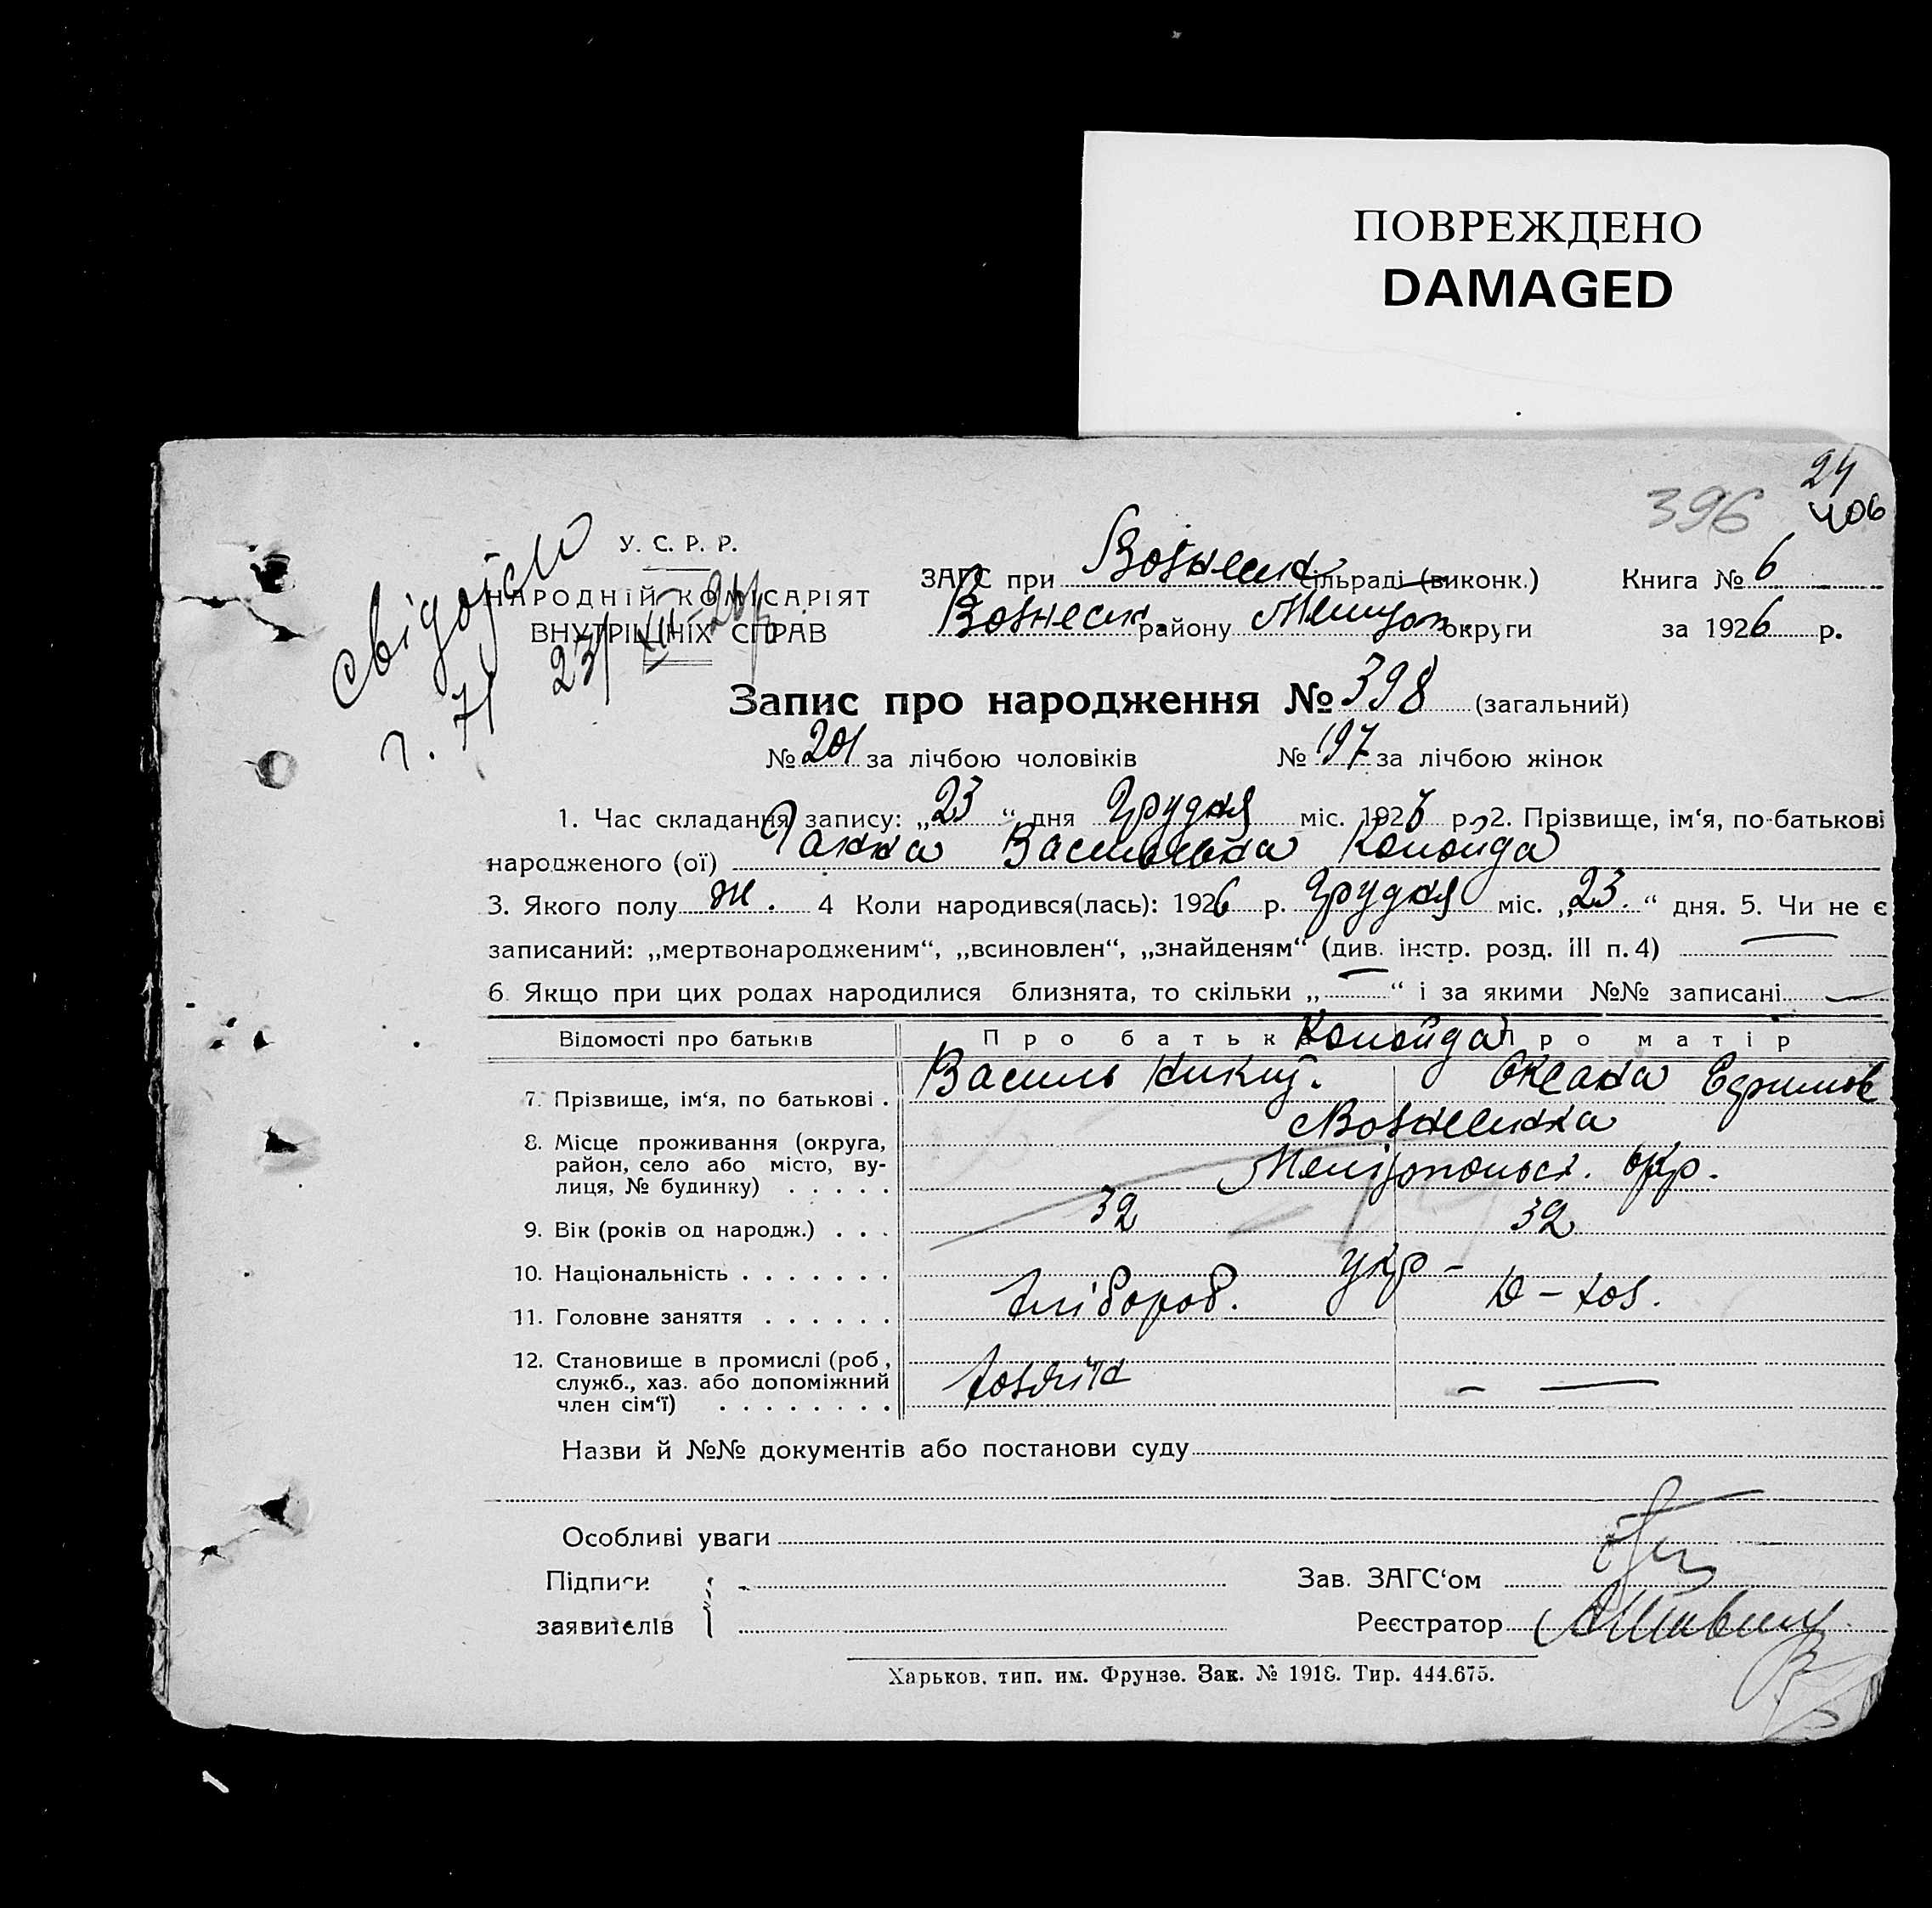 ПОВРЕЖДЕНО
DAMAGED
24
396 406
Свідоцтво
ч. 71 23/XII-26
У. С. Р. Р.
НАРОДНІЙ КОМІСАРІЯТ
ВНУТРІШНІХ СПРАВ
ЗАГС при Вознесен. сільраді (виконк.) Книга № 6
Вознесен. району Меліտоп. округи за 1926 р.
Запис про народження № 398 (загальний)
№ 201 за лічбою чоловіків № 197 за лічбою жінок
1. Час складання запису: „23“ дня Грудня міс. 1926 р. 2. Прізвище, ім'я, по-батькові
народженого (ої) Ганна Васильевна Коноида
3. Якого полу ж. 4 Коли народився(лась): 1926 р. Грудня міс. „23.“ дня. 5. Чи не є
записаний: „мертвонародженим“, „всиновлен“, „знайденям“ (див. інстр. розд. III п. 4) —
6. Якщо при цих родах народилися близнята, то скільки „—“ і за якими №№ записані —
Відомості про батьків Про батька Про матір
Коноида
7. Прізвище, ім'я, по батькові . Василь Никит. Оксана Ефимов
8. Місце проживання (округа, район, село або місто, ву-
лиця, № будинку) . . . . . Вознесенка
Мелітопольск. окр.
9. Вік (років од народж.) . . . 32 32
10. Національність . . . . . . . укр -
11. Головне заняття . . . . . . хлібороб. д-хоз.
12. Становище в промислі (роб.,
служб., хаз. або допоміжний
член сім'ї) . . . . . . . . хозяїн — —
Назви й №№ документів або постанови суду
Особливі уваги
Підписи
заявителів
Зав. ЗАГС'ом
Реєстратор
Харьков, тип. им. Фрунзе. Зак. № 1918. Тир. 444.675.